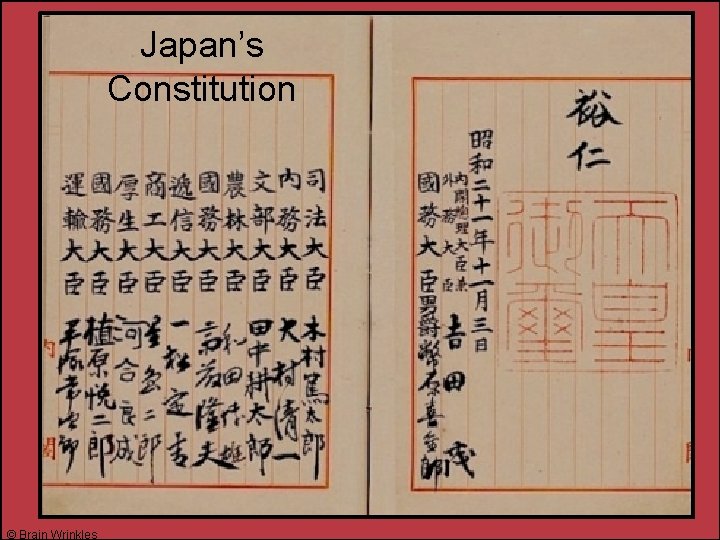 Japan’s
Constitution
裕仁
天皇
御璽
昭和二十一年十一月三日
内閣総理大臣兼
外務大臣
吉田茂
國務大臣 男爵幣原喜重郎
司法大臣 木村篤太郎
内務大臣 大村清一
文部大臣 田中耕太郎
農林大臣 和田博雄
國務大臣 斎藤隆夫
逓信大臣 一松定吉
商工大臣 星島二郎
厚生大臣 河合良成
國務大臣 植原悦二郎
運輸大臣 平塚常次郎
© Brain Wrinkles